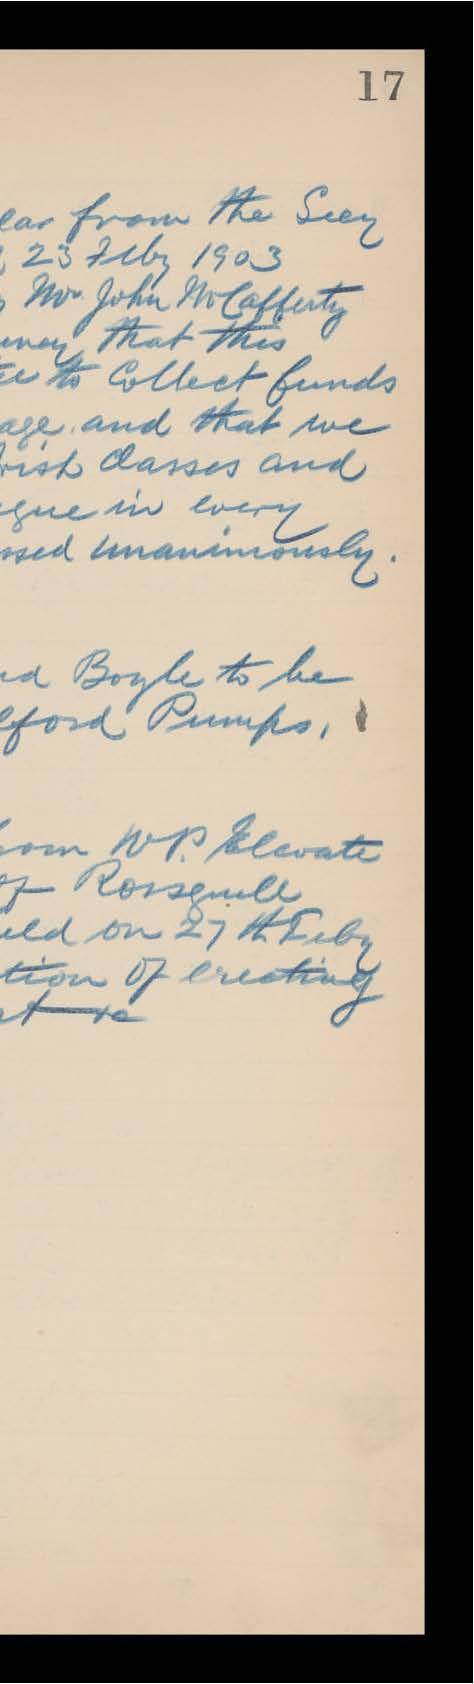 17
lar from the Secy
23 Feby 1903
Mr John McCafferty
that this
to Collect funds
age and that we
rish classes and
gue in every
ssed unanimously.
nd Boyle to be
lford Pumps.
rom W P.
of Rossguill
eld on 27th Feby
tion of erecting